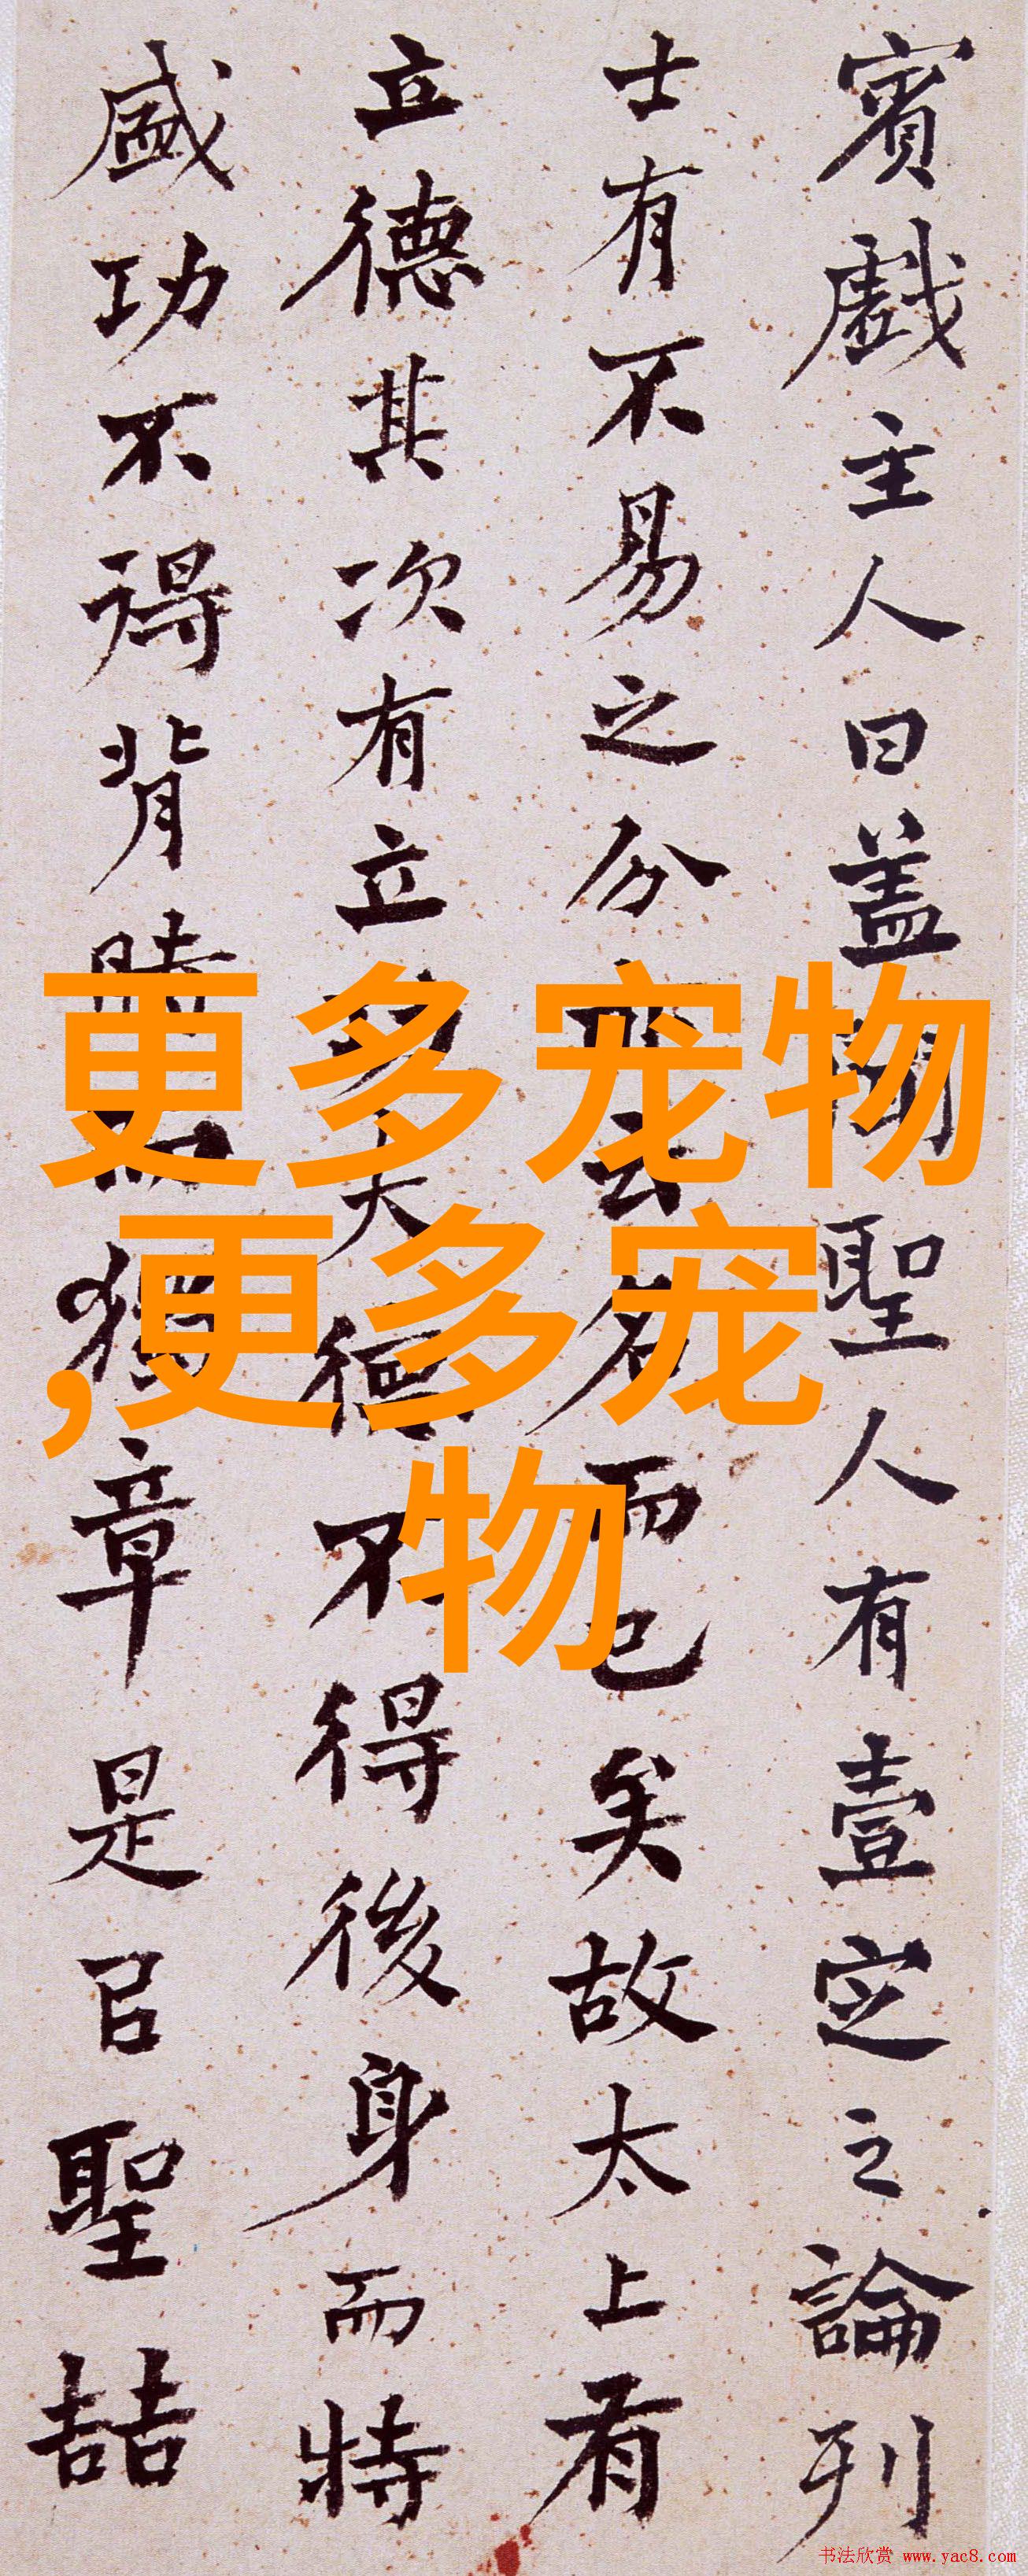 賓戲主人曰盖聖人有壹定之論列
士有不易之分云名而已矣故太上有
立德其次有立夫德不得後身而特
盛功不得背章是㠯聖喆
更多宠物
,更多宠
物
书法欣赏 www.yac8.com